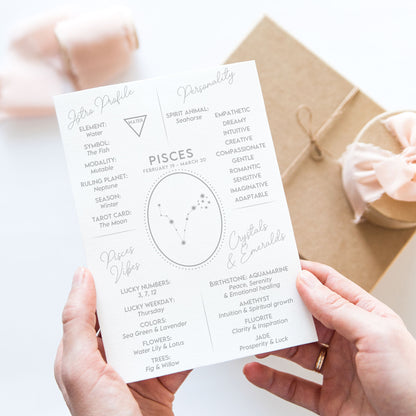 Astro Profile
ELEMENT:
Water
SYMBOL:
The Fish
MODALITY:
Mutable
RULING PLANET:
Neptune
SEASON:
Winter
TAROT CARD:
The Moon
WATER
Personality
SPIRIT ANIMAL:
Seahorse
EMPATHETIC
DREAMY
INTUITIVE
CREATIVE
COMPASSIONATE
GENTLE
ROMANTIC
SENSITIVE
IMAGINATIVE
ADAPTABLE
PISCES
FEBRUARY 19 - MARCH 20
Pisces
Vibes
LUCKY NUMBERS:
3, 7, 12
LUCKY WEEKDAY:
Thursday
COLORS:
Sea Green & Lavender
FLOWERS:
Water Lily & Lotus
TREES:
Fig & Willow
Crystals
& Emeralds
BIRTHSTONE: AQUAMARINE
Peace, Serenity
& Emotional healing
AMETHYST
Intuition & Spiritual growth
FLUORITE
Clarity & Inspiration
JADE
Prosperity & Luck